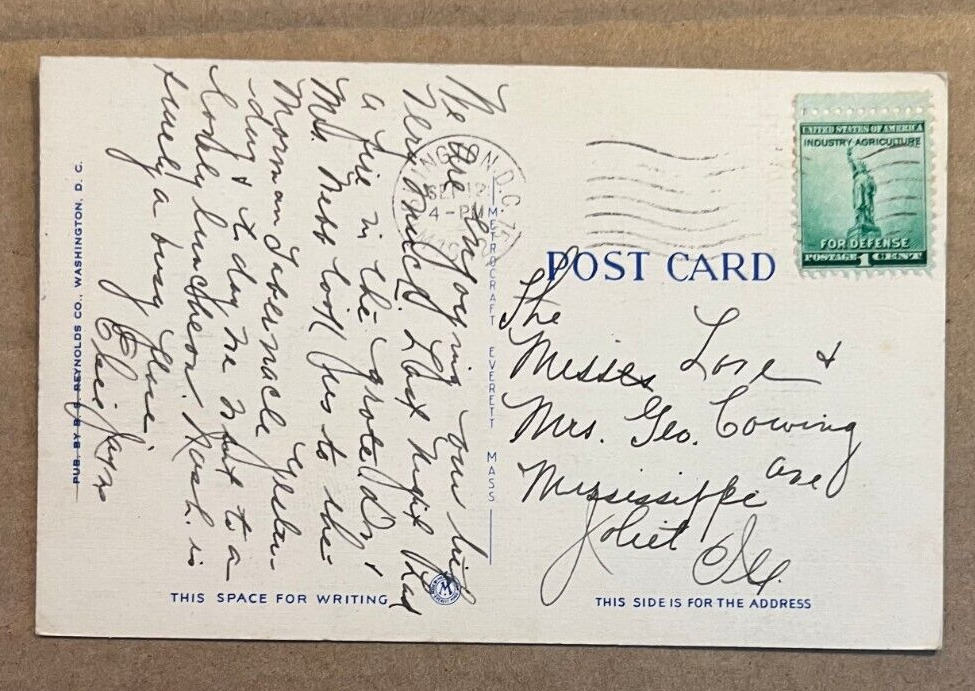 We are enjoying our trip
very much. Last night had
a fire in the grate Dr. &
Mrs. Ness took us to the
Mormon Tabernacle Yester-
day & to day we went to a
lovely luncheon. Wash. is
surely a busy place
Elsie
PUB. BY B. S. REYNOLDS CO., WASHINGTON, D. C.
THIS SPACE FOR WRITING
METROCRAFT EVERETT MASS
WASHINGTON, D.C.
SEP 12
4-PM
UNITED STATES OF AMERICA
INDUSTRY AGRICULTURE
FOR DEFENSE
POSTAGE 1 CENT
POST CARD
The
Misses Love &
Mrs. Geo. Cowing
Mississippi Ave
Joliet
Ill.
THIS SIDE IS FOR THE ADDRESS
M